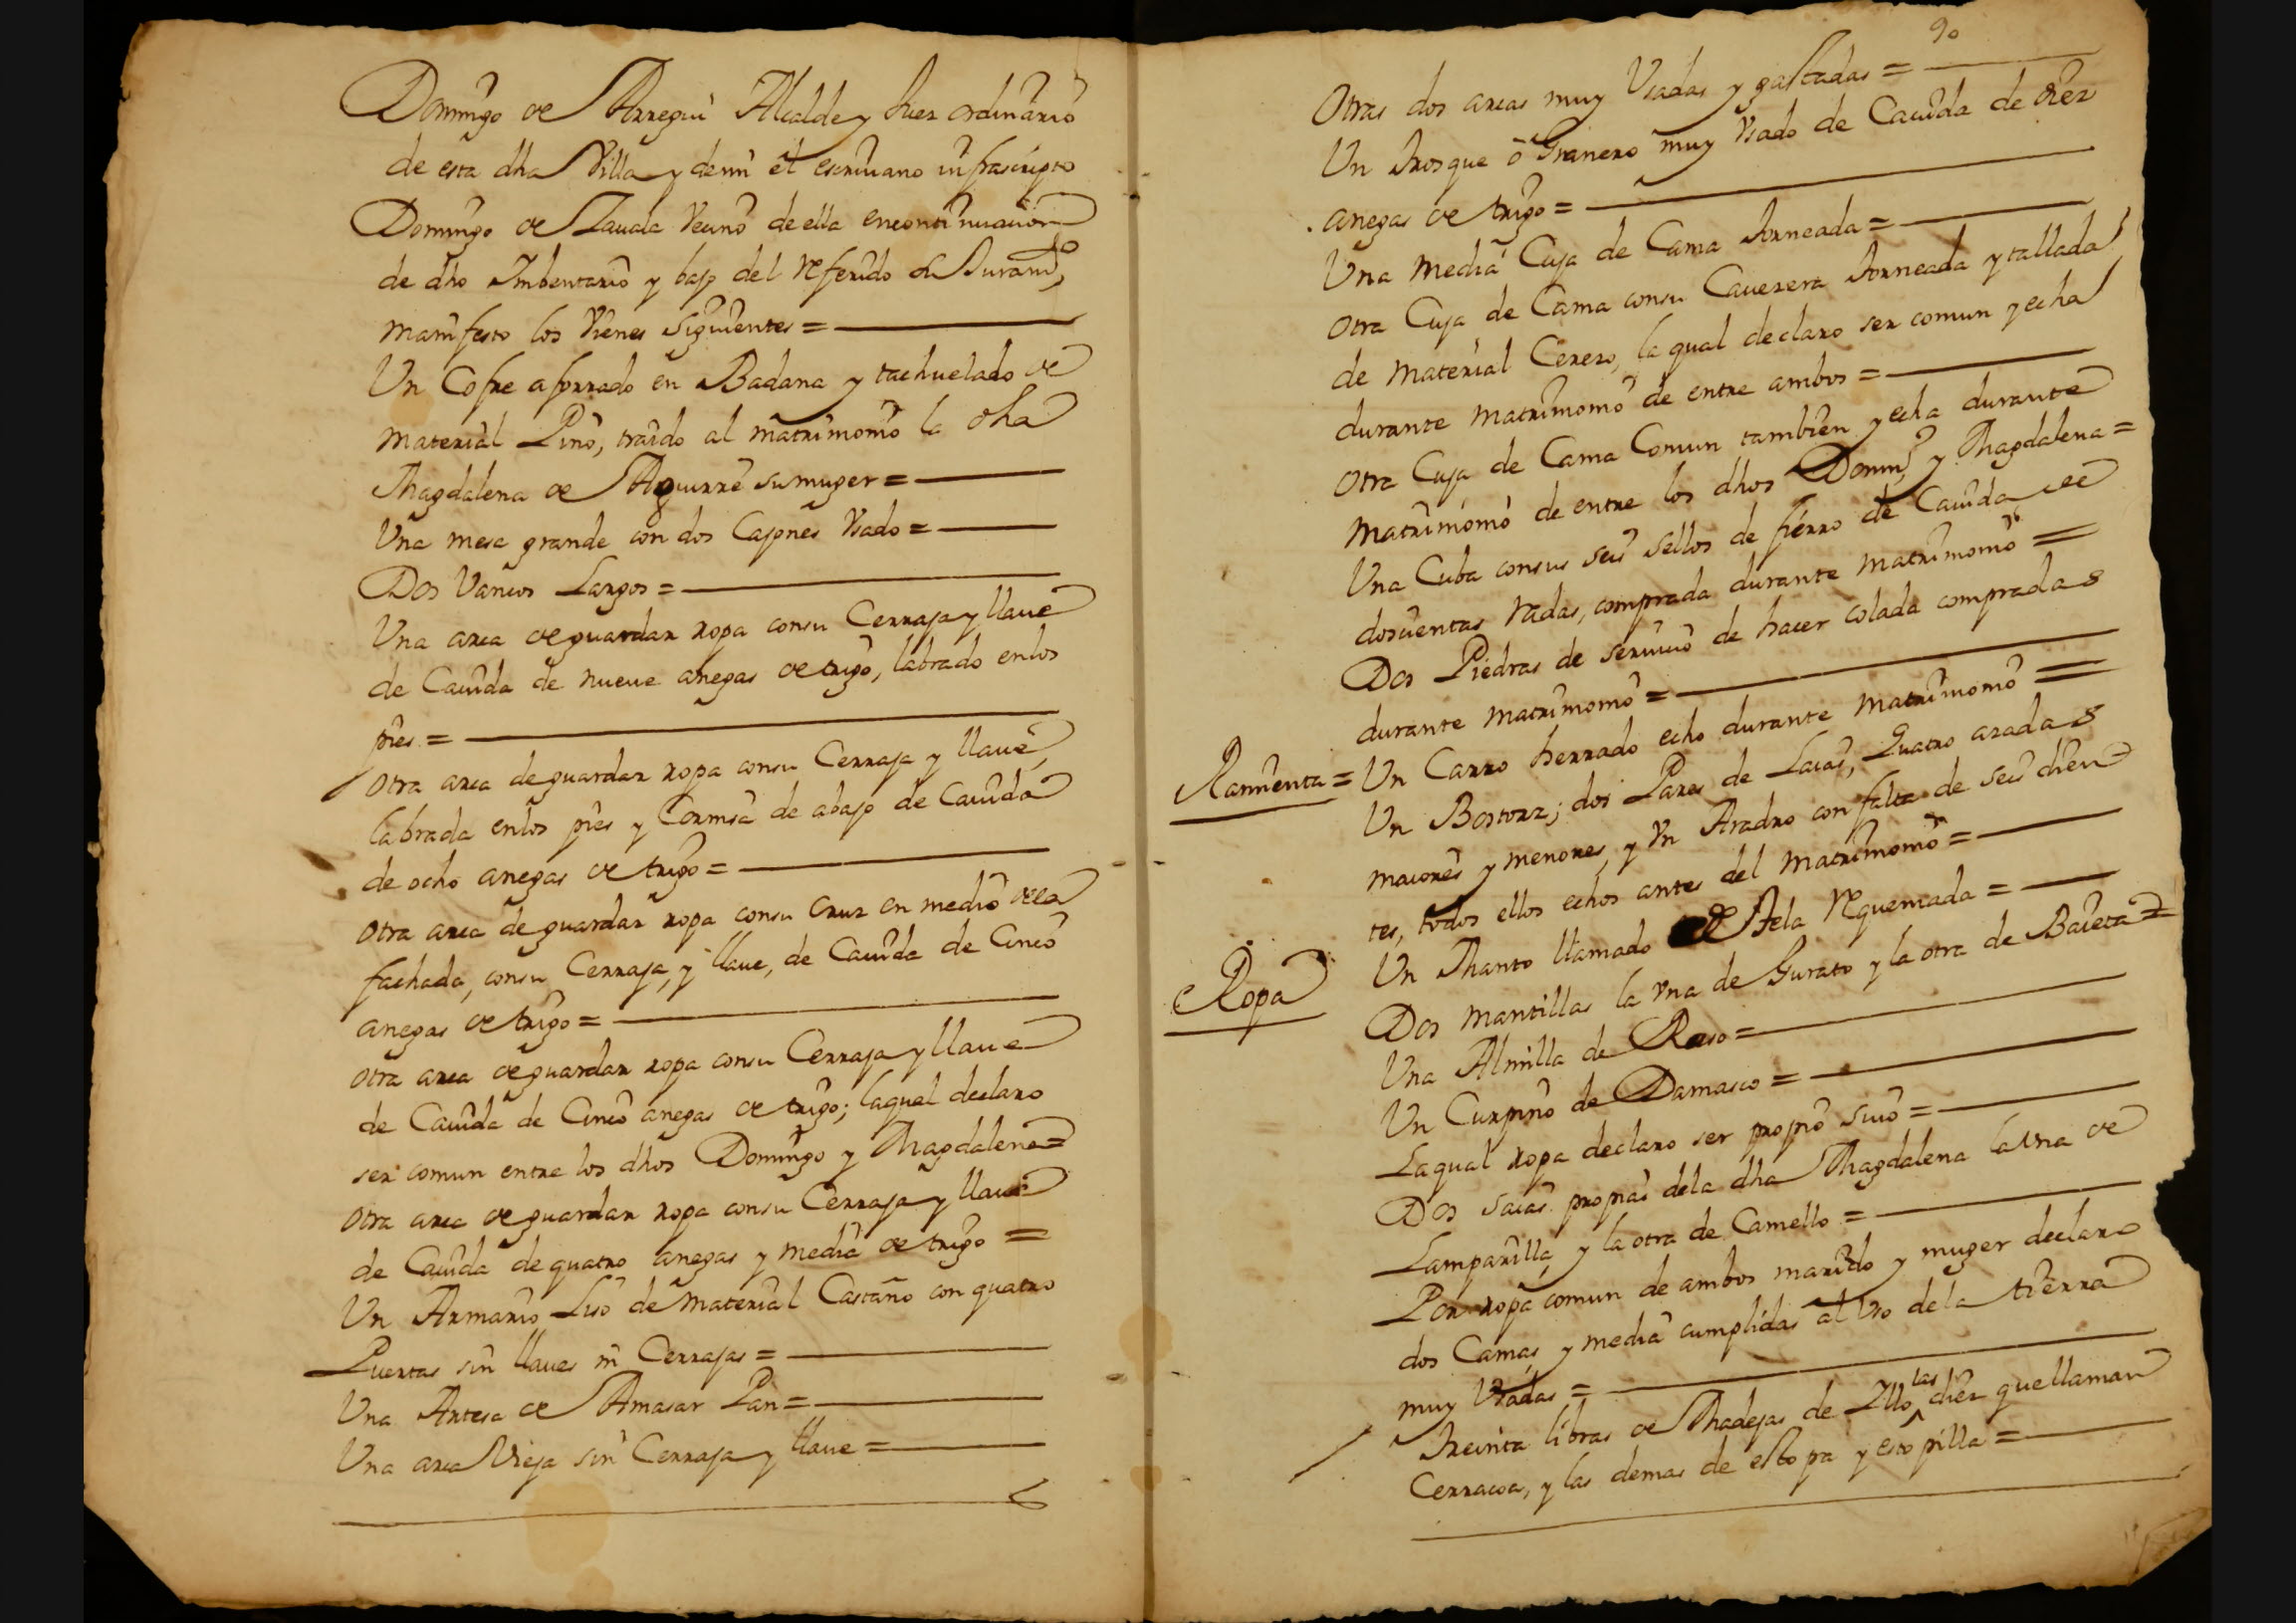 Domingo de Arregui Alcalde y Juez ordinario
de esta dha Villa y de mi el escriuano infrascripto
Domingo de Zauala vecino de ella encontinuacion
de dho Imbentario y bajo del referido su Juramto,
manifesto los Vienes siguientes =
Un Cofre aforrado en Badana y tachuelado de
material Pino, traido al matrimonio la dha
Magdalena de Aguirre su muger =
Una mesa grande con dos Cajones Vsado =
Dos Vancos Largos =
Una arca de guardar ropa consu Cerraja y llaue
de Cauida de nueue anegas de trigo, labrado enlos
pies =
Otra arca de guardar ropa consu Cerraja y llaue,
labrada enlos pies y Cornisa de abajo de Cauida
de ocho anegas de trigo =
Otra arca de guardar ropa consu cruz en medio dela
fachada, consu Cerraja, y llaue, de Cauida de Cinco
anegas de trigo =
Otra arca de guardar ropa consu Cerraja y llaue
de Cauida de Cinco anegas de trigo; laqual declaro
ser comun entre los dhos Domingo y Magdalena =
Otra arca de guardar ropa consu Cerraja y llaue
de Cauida de quatro anegas y media de trigo =
Un Armario Liso de material Castaño con quatro
Puertas sin llaues ni Cerrajas =
Una Artesa de Amasar Pan =
Una arca Vieja sin Cerraja y llaue =
90
Otras dos arcas muy Vsadas y gastadas =
Un Trosque ó Granero muy Vsado de Cauida de diez
anegas de trigo =
Una media Cuja de Cama Torneada =
Otra Cuja de Cama consu Cauezera Torneada y tallada
de material Cerezo, la qual declaro ser comun y echa
durante matrimonio de entre ambos =
Otra Cuja de Cama Comun tambien y echa durante
matrimonio de entre los dhos Domingo, y Magdalena =
Una Cuba consus seis sellos de fierro de Cauida de
doscientas Vadas, comprada durante matrimonio =
Dos Piedras de seruicio de hacer colada compradas
durante matrimonio =
Ramienta = Un Carro herrado echo durante matrimonio =
Un Bostorz; dos Pares de Laias, Quatro azadas
maiores y menores, y Vn Aradro con falta de seis dien
tes, todos ellos echos antes del matrimonio =
Ropa
Un Manto llamado de Tela Requemada =
Dos mantillas la vna de Gurato y la otra de Baieta =
Una Almilla de Raso =
Un Curpiño de Damasco =
Laqual ropa declaro ser propio suio =
Dos saias propias dela dha Magdalena la vna de
Lamparilla, y la otra de Camello =
Por ropa comun de ambos marido y muger declaro
dos Camas, y media cumplidas al Vso dela tierra
muy Vsadas =
Treinta libras de Madejas de Illo, las diez que llaman
Cerracoa, y las demas de estopa y estopilla =